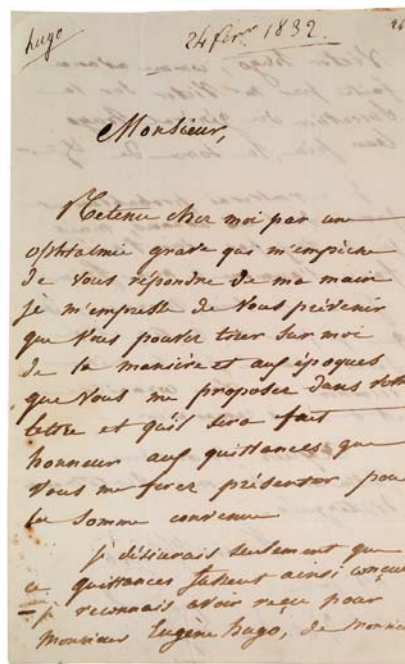 hugo
24 févr 1832.
Monsieur,
Retenu chez moi par une
ophtalmie grave qui m'empèche
de vous répondre de ma main
je m'empresse de vous prévenir
que vous pouvez tirer sur moi
de la manière et aux époques
que vous me proposez dans votre
lettre et qu'il sera fait
honneur aux quittances que
vous me ferez présenter pou
la somme convenue
je désirerais seulement que
ce quittances fussent ainsi conçue
= je reconnais avoir reçu pour
Monsieur Eugène hugo, de Monsie